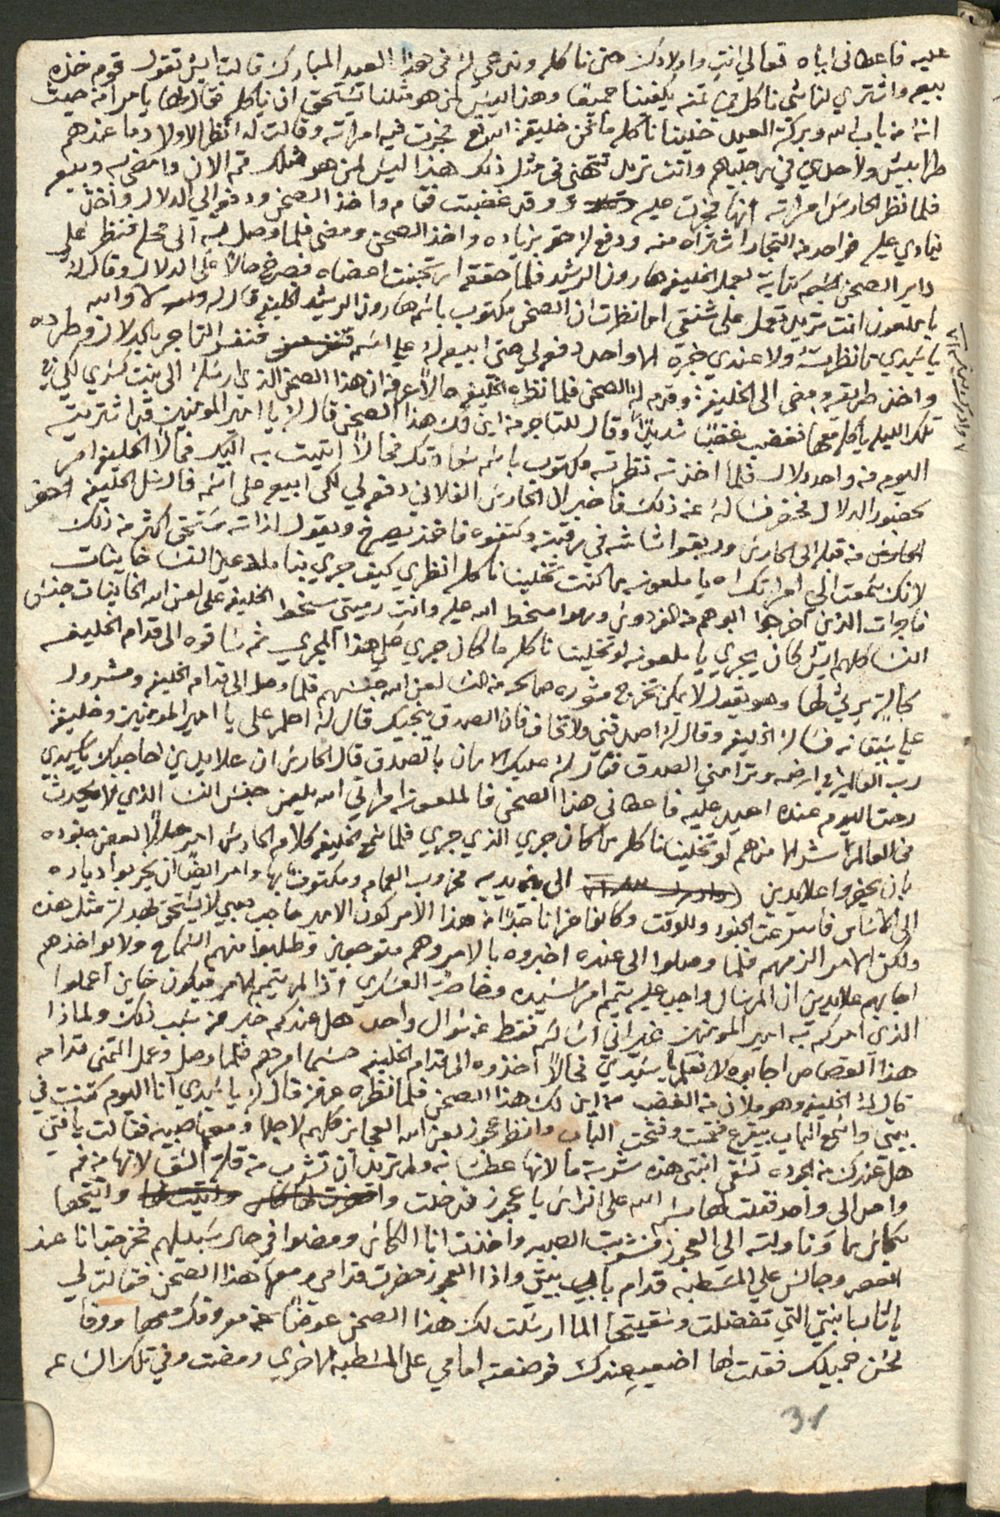 عليه فاعطاني اياه تعالي انتِ واولادك حتى ناكله وندعي له في هذا العيد المبارك قالت ايش تقول قوم خذه
بيعه واشتري لنا شي ناكل من ثمنه يكفينا جميعا وهذا ليس لمن هو مثلنا تستحق ان ياكل فقال لها يا مرا من حيث
انه من باب الله وبركة العيد خلينا ناكله ما نحن خليقة الله فخرجت فيه امراته وقالت له انظر الاولاد ما عندهم
طرابيش ولا حدي في رجليهم وانت تريد تتهنى في مثل ذلك هذا ليس لمن هو مثلك قم الان وامضي به وبيعه
فلما نظر الحارس امراته انها خرجت عليه وقد غضبت فقام واخذ الصحن ودفعه الى الدلال واخذ
ينادي عليه فواحد من التجار اشتراه منه ودفع له حقه بزياده واخذ الصحن ومضى فلما وصل به الى محله فنظر على
داير الصحن كتابة لعمل الخليفه هارون الرشيد فلما حققه ارتجفت اعضاه فصرخ حالاً على الدلال وقال له
يا ملعون انت تريد تعمل على شنقي اما نظرت ان الصحن مكتوب باسم هارون الرشيد الخليفه قال له لا والله
يا سيدي ما نظرته ولا عندي خبره الا واحد دفعه لي حتى ابيعه له على اسمه فنفر التاجر بالدلال وطرده
واخذ طريقه ومضى الى الخليفة وقدم له الصحن فلما نظره الخليفه حالاً عرفه ان هذا الصحن الذي ارسله الى بنت كسري لكي في
تلك الليله ياكل معها فغضب غضبًا شديدًا وقال للتاجر من اين لك هذا الصحن قال له يا امير المومنين قد اشتريته
اليوم من واحد دلال فلما اخذته نظرته مكتوب باسم سعادتك فحالاً اتيت به اليك فحالاً الخليفه امر
بحضور الدلال فحضر فساله عن ذلك فاخبر ان الحارس الفلاني دفعه لي لكي ابيعه على اسمه فارسل الخليفه احضر
الحارس من قبله الى الحارس وربقوا شاشه في رقبته وكتفوه فاخذ يصرخ ويقول اذا انه مستحق اكثر من ذلك
لانك سمعت الى امراتك اه يا ملعونه ما كنت تخلينا ناكله انظري كيف جري بنا ملاعين النسا خاينات
فاجرات الذين اخرجوا ابوهم من الفردوس وهوا مسخط الله عليه وانت رميتي سخط الخليفه علي لعن الله الخاينات جنس
النسا كلهم ايش كان يجري يا ملعونه لو تخلينا ناكله ما كان جري علي هذا المجرى ثم ساقوه الى قدام الخليفه
كالمة بري لها وهو يقول لا يمكن تخرج مشوره صالحه من النسا لعن الله جنسهم فلما وصل الى قدام الخليفه ومشرور
علي سيقانه فساله الخليفه وقال له اصدقني ولا تخاف فان الصدق ينجيك قال له احلم علي يا امير المومنين وخليفة
رب العالمين في ارضه وترامني الصدق فقال له عليك الامان بالصدق قال الحارس ان علا الدين حاجبك يا سيدي
رحت اليوم عنده اعيد عليه فاعطاني هذا الصحن فالملعونه امراتي الله يلعن جنس النسا الذي لا يجدث
في العالم اشر الا منهم لو تخلينا ناكله ما كان جري الذي جري فلما سمع الخليفه كلام الحارس امر حالاً لبعض جنوده
بان يحضروا علا الدين الى بين يديه مخروب العمامه ومكتوف بها وامر ايضًا ان يخربوا دياره
الى الاساس فاسرعت الجنود وللوقت وكانوا حزانا جدًا من هذا الامر كون الامير حاجب يعني لا يستحق بهدلة مثل هذه
ولكن الامر الزمهم فلما وصلوا الى عنده اخبروه بالامر وهم متوجعين وطلبوا منهم السماح ولا يواخذهم
اجابهم علا الدين ان المرسال واجب عليه يتم امر سيده وخاصة العسكري اذا لم يتمم الامر فيكون خاين اعملوا
الذي امركم به امير المومنين غير اني اسالكم فقط عن سوال واحد هل عندكم خبر من سبب ذلك ولماذا
هذا القصاص اجابوه لا نعلم يا سيدي فحالاً اخذوه الى قدام الخليفه حسبما امرهم فلما وصل وعمل التمني قدامه
قال له الخليفه وهو ملان من الغضب من اين لك هذا الصحن فلما نظره عرفه قال له يا سيدي انا اليوم كنت في
بيتي واسمع الباب يقرع فقمت وفتحت الباب وانظر عجوز لعن الله العجايز كلهم لاجلها ومعها صبيه فقالت يا فتي
هل عندك من الجوده تسقي ابنتي هذه شربة ما لانها عطشانه ولم تريد ان تشرب من قلة السقا لانها من فم
واحد الى واحد فقلت لها بسم الله على الراس يا عجوز فدخلت واتيتها
بكاس ما وناولته الي العجوز فشربت الصبيه واخذت انا الكاس ومضوا في حال سبيلهم فخرجت انا عند
العصر وجالس علي المسطبه قدام باب بيتي واذا العجوز حضرت قدامي ومعها هذا الصحن فقالت لي
يا شاب ابنتي التي تفضلت وسقيتها الما ارسلت لك هذا الصحن عوضًا عن معروفك معها ووفا
لحسن جميلك فقلت لها اضعيه عندك فوضعته امامي علي المسطبه الاخري ومضت وفي تلك الساعه
31